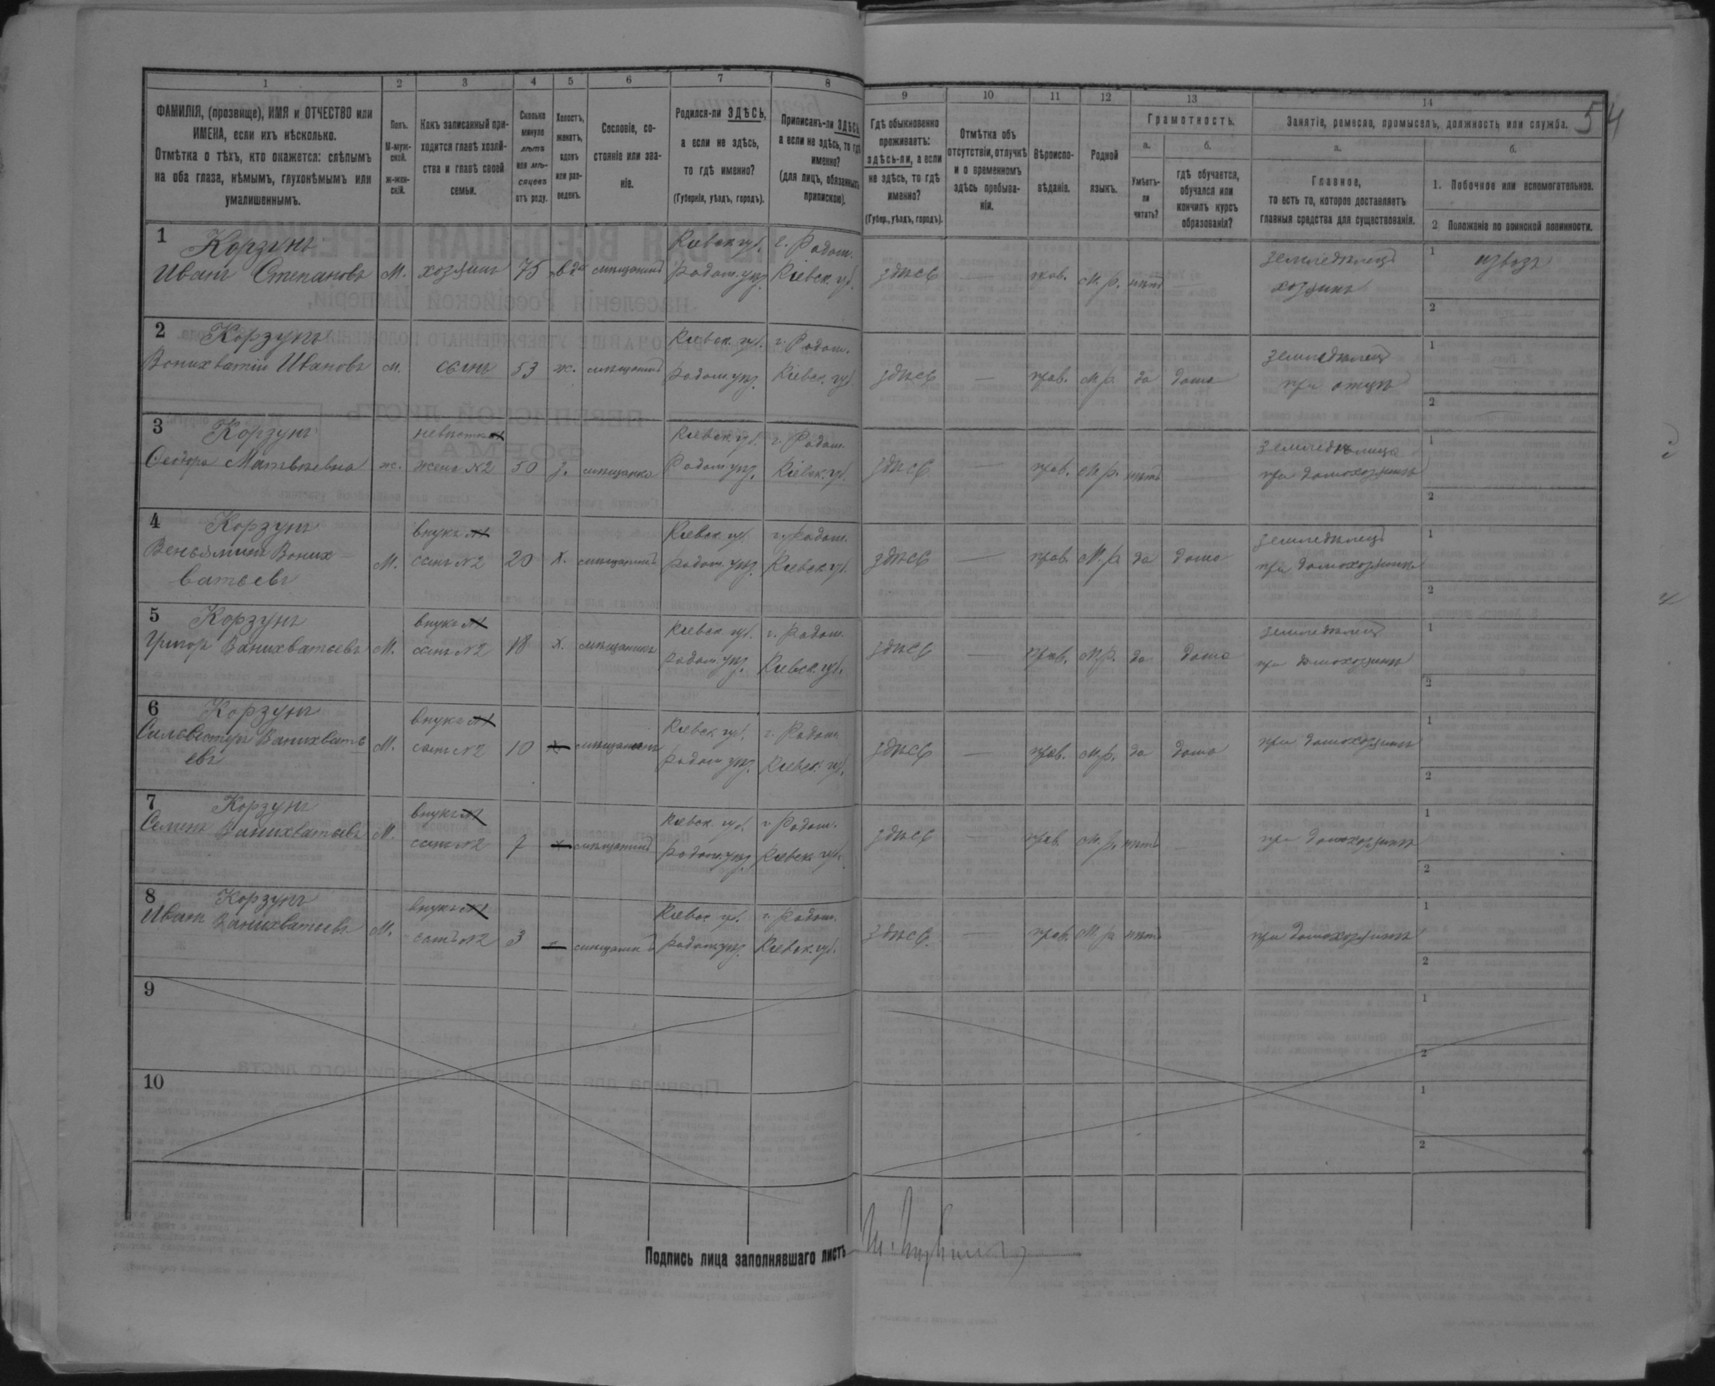 1 2 3 4 5 6 7 8
ФАМИЛІЯ, (прозвище), ИМЯ и ОТЧЕСТВО или
ИМЕНА, если ихъ нѣсколько.
Отмѣтка о тѣхъ, кто окажется: слѣпымъ
на оба глаза, нѣмымъ, глухонѣмымъ или
умалишеннымъ.
Полъ.
М-муж-
ской.
ж-жен-
скій.
Какъ записанный при-
ходится главѣ хозяй-
ства и главѣ своей
семьи.
Сколько
минуло
лѣтъ
или мѣ-
сяцевъ
отъ роду.
Холостъ,
женатъ,
вдовъ
или раз-
веденъ.
Сословіе, со-
стояніе или зва-
ніе.
Родился-ли ЗДѢСЬ,
а если не здѣсь,
то гдѣ именно?
(Губернія, уѣздъ, городъ).
Приписанъ-ли ЗДѢСЬ
а если не здѣсь, то гдѣ
именно?
(для лицъ, обязанныхъ
припискою).
9 10 11 12 13 14
54
Гдѣ обыкновенно
проживаетъ:
здѣсь-ли, а если
не здѣсь, то гдѣ
именно?
(Губер., уѣздъ, городъ).
Отмѣтка объ
отсутствіи, отлучкѣ
и о временномъ
здѣсь пребыва-
ніи.
Вѣроиспо-
вѣданіе.
Родной
языкъ.
Грамотность.
а. б.
Умѣетъ-
ли
читать?
гдѣ обучается,
обучался или
кончилъ курсъ
образованія?
Занятіе, ремесло, промыселъ, должность или служба.
а. б.
Главное,
то есть то, которое доставляетъ
главныя средства для существованія.
1. Побочное или вспомогательное.
2 Положеніе по воинской повинности.
1 Корзунъ Кіевск. губ. г. Радом. земледѣлецъ 1 извозъ
Иванъ Степановъ М. хозяинъ 75 вд. мѣщанинъ Радом. уѣз. Кіевск. губ. здѣсь — прав. М.р. нѣтъ — хозяинъ
2
2 Корзунъ Кіевск. губ. г. Радом. земледѣлецъ 1
Вонихватій Ивановъ М. сынъ 53 ж. мѣщанинъ Радом. уѣз. Кіевск. губ. здѣсь — прав. М.р. да дома при отцѣ
2
3 Корзунъ невѣстка Кіевск. губ. г. Радом. земледѣлица 1
Ѳедора Матвѣевна ж. жена №2 50 з. мѣщанка Радом. уѣз. Кіевск. губ. здѣсь — прав. М.р. нѣтъ при домохозяинѣ
2
4 Корзунъ внукъ №1 Кіевск. губ. г. Радом. земледѣлецъ 1
Веньяминъ Воних-
ватьевъ М. сынъ №2 20 х. мѣщанинъ Радом. уѣз. Кіевск. губ. здѣсь — прав. М.р. да дома при домохозяинѣ
2
5 Корзунъ внукъ №1 Кіевск. губ. г. Радом. земледѣлецъ 1
Григор. Ванихватьевъ М. сынъ №2 18 х. мѣщанинъ Радом. уѣз. Кіевск. губ. здѣсь — прав. М.р. да дома при домохозяинѣ
2
6 Корзунъ внукъ №1 Кіевск. губ. г. Радом. 1
Сильвестръ Ванихвать-
евъ М. сынъ №2 10 х мѣщанинъ Радом. уѣз. Кіевск. губ. здѣсь — прав. М.р. да дома при домохозяинѣ
2
7 Корзунъ внукъ №1 Кіевск. губ. г. Радом. 1
Семенъ Ванихватьевъ М. сынъ №2 7 х мѣщанинъ Радом. уѣз. Кіевск. губ. здѣсь — прав. М.р. нѣтъ — при домохозяинѣ
2
8 Корзунъ внукъ №1 Кіевск. губ. г. Радом. 1
Иванъ Ванихватьевъ М. сынъ №2 3 — мѣщанинъ Радом. уѣз. Кіевск. губ. здѣсь — прав. М.р. нѣтъ — при домохозяинѣ
2
9 1
2
10 1
2
Подпись лица заполнявшаго листъ